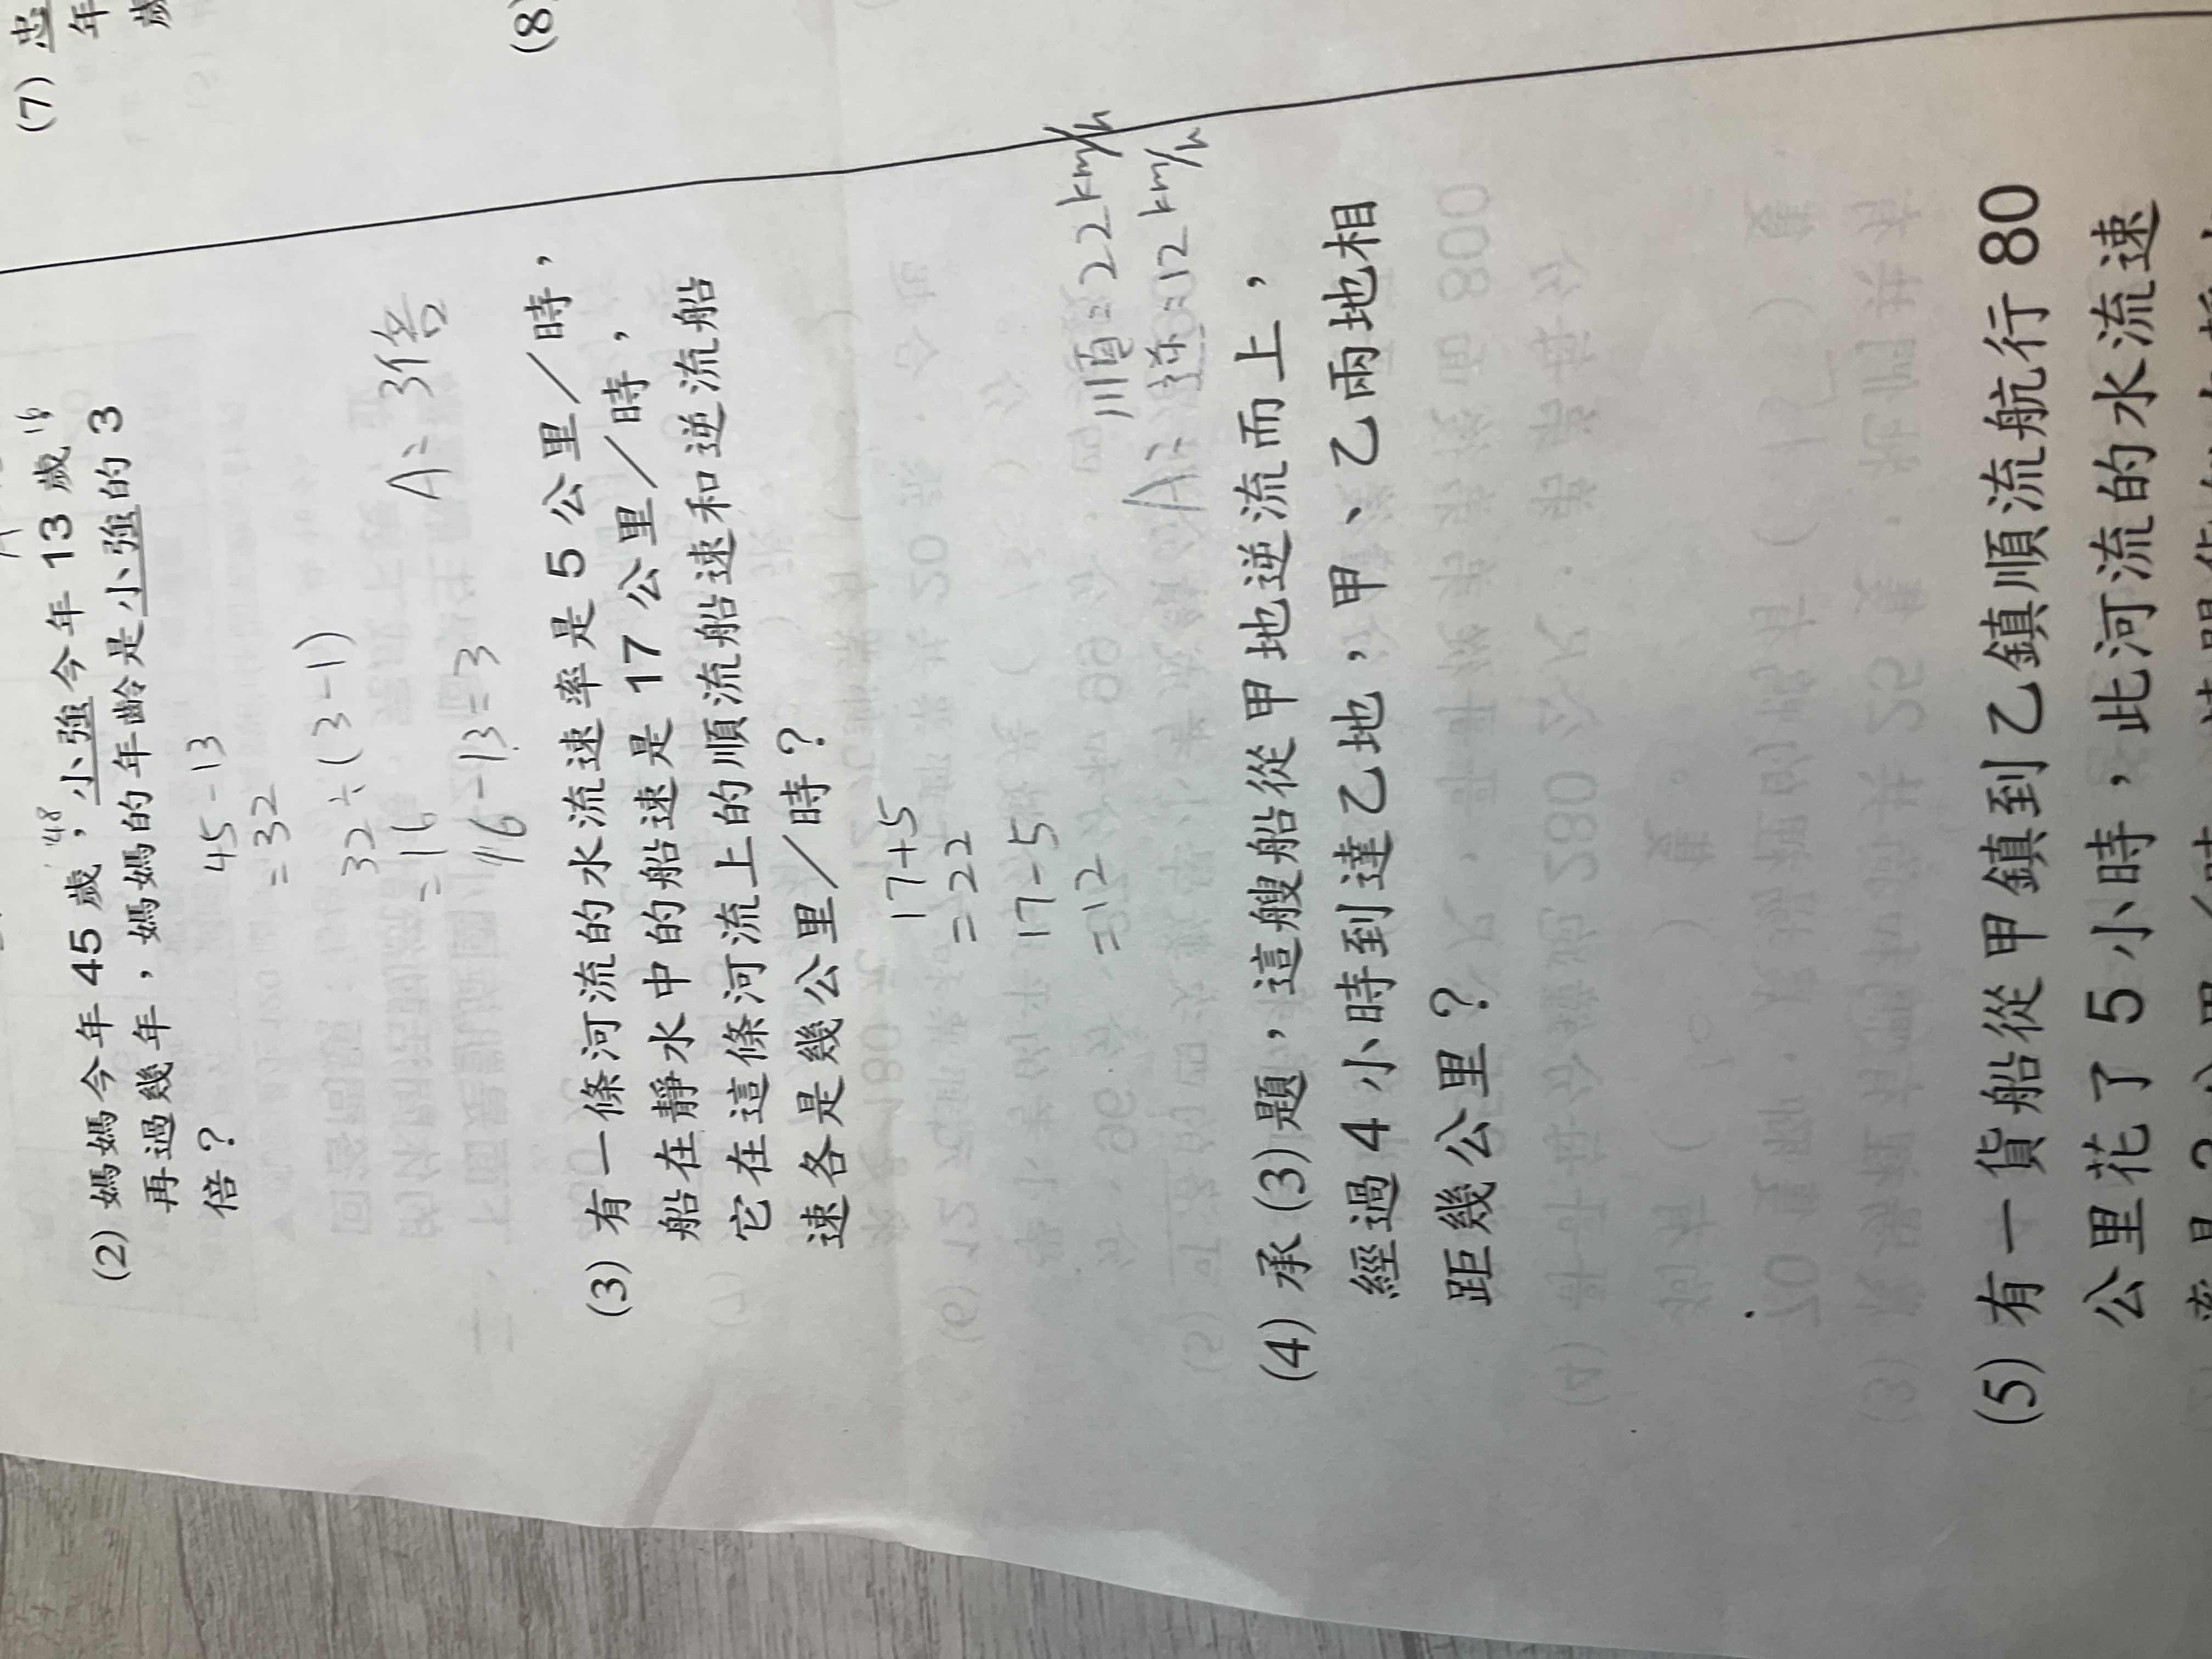 (7) 忠
年
歲
(8)
(2) 媽媽今年 45 歲，小強今年 13 歲
48
16
再過幾年，媽媽的年齡是小強的 3
倍？
45-13
=32
32÷(3-1)
=16
16-13=3
A:3倍
(3) 有一條河流的水流速率是 5 公里／時，
船在靜水中的船速是 17 公里／時，
它在這條河流上的順流船速和逆流船
速各是幾公里／時？
17+5
=22
17-5
=12
A:順=22km/h
逆=12km/h
(4) 承 (3) 題，這艘船從甲地逆流而上，
經過 4 小時到達乙地，甲、乙兩地相
距幾公里？
(5) 有一貨船從甲鎮到乙鎮順流航行 80
公里花了 5 小時，此河流的水流速